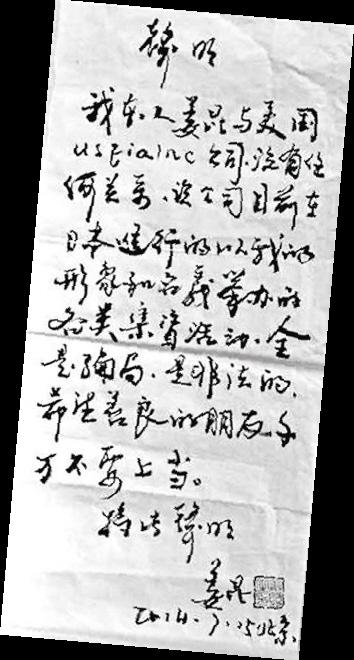 声明
我本人姜昆与美国
usfia inc公司.没有任
何关系.该公司目前在
日本进行的以我的
形象和名义举办的
各类集资活动.全
是骗局.是非法的.
希望善良的朋友千
万不要上当。
特此声明
姜昆
北京